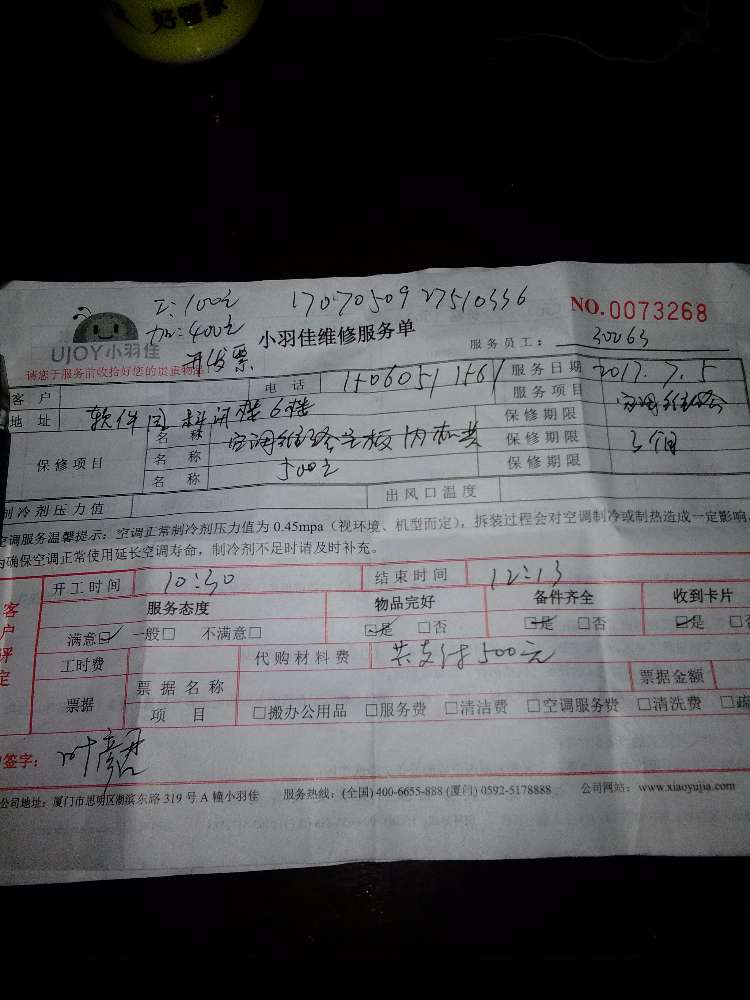 好管家
工:100元 17070509 27510336 NO.0073268
加:400元 小羽佳维修服务单
UJOY小羽佳 开发票 服务员工: 30063
请您于服务前收拾好您的贵重物品
客户 电话 15060511561 服务日期 2017.7.5
地址 软件园 6楼 服务项目 空调维修
保修期限
保修项目 名称 空调维修主板内机共 保修期限 3个月
名称 500元 保修期限
名称
制冷剂压力值 出风口温度
空调服务温馨提示:空调正常制冷剂压力值为 0.45mpa(视环境、机型而定),拆装过程会对空调制冷或制热造成一定影响,
为确保空调正常使用延长空调寿命,制冷剂不足时请及时补充。
开工时间 10:30 结束时间 12:13
客户评定 服务态度 物品完好 备件齐全 收到卡片
满意☑ 一般□ 不满意□ ☑是 □否 ☑是 □否 ☑是 □否
工时费 代购材料费 共支付500元
票据 票据名称 票据金额
项目 □搬办公用品 □服务费 □清洁费 □空调服务费 □清洗费 □疏
签字:
公司地址:厦门市思明区湖滨东路 319 号 A 幢小羽佳 服务热线:(全国) 400-6655-888 (厦门) 0592-5178888 公司网站:www.xiaoyujia.com